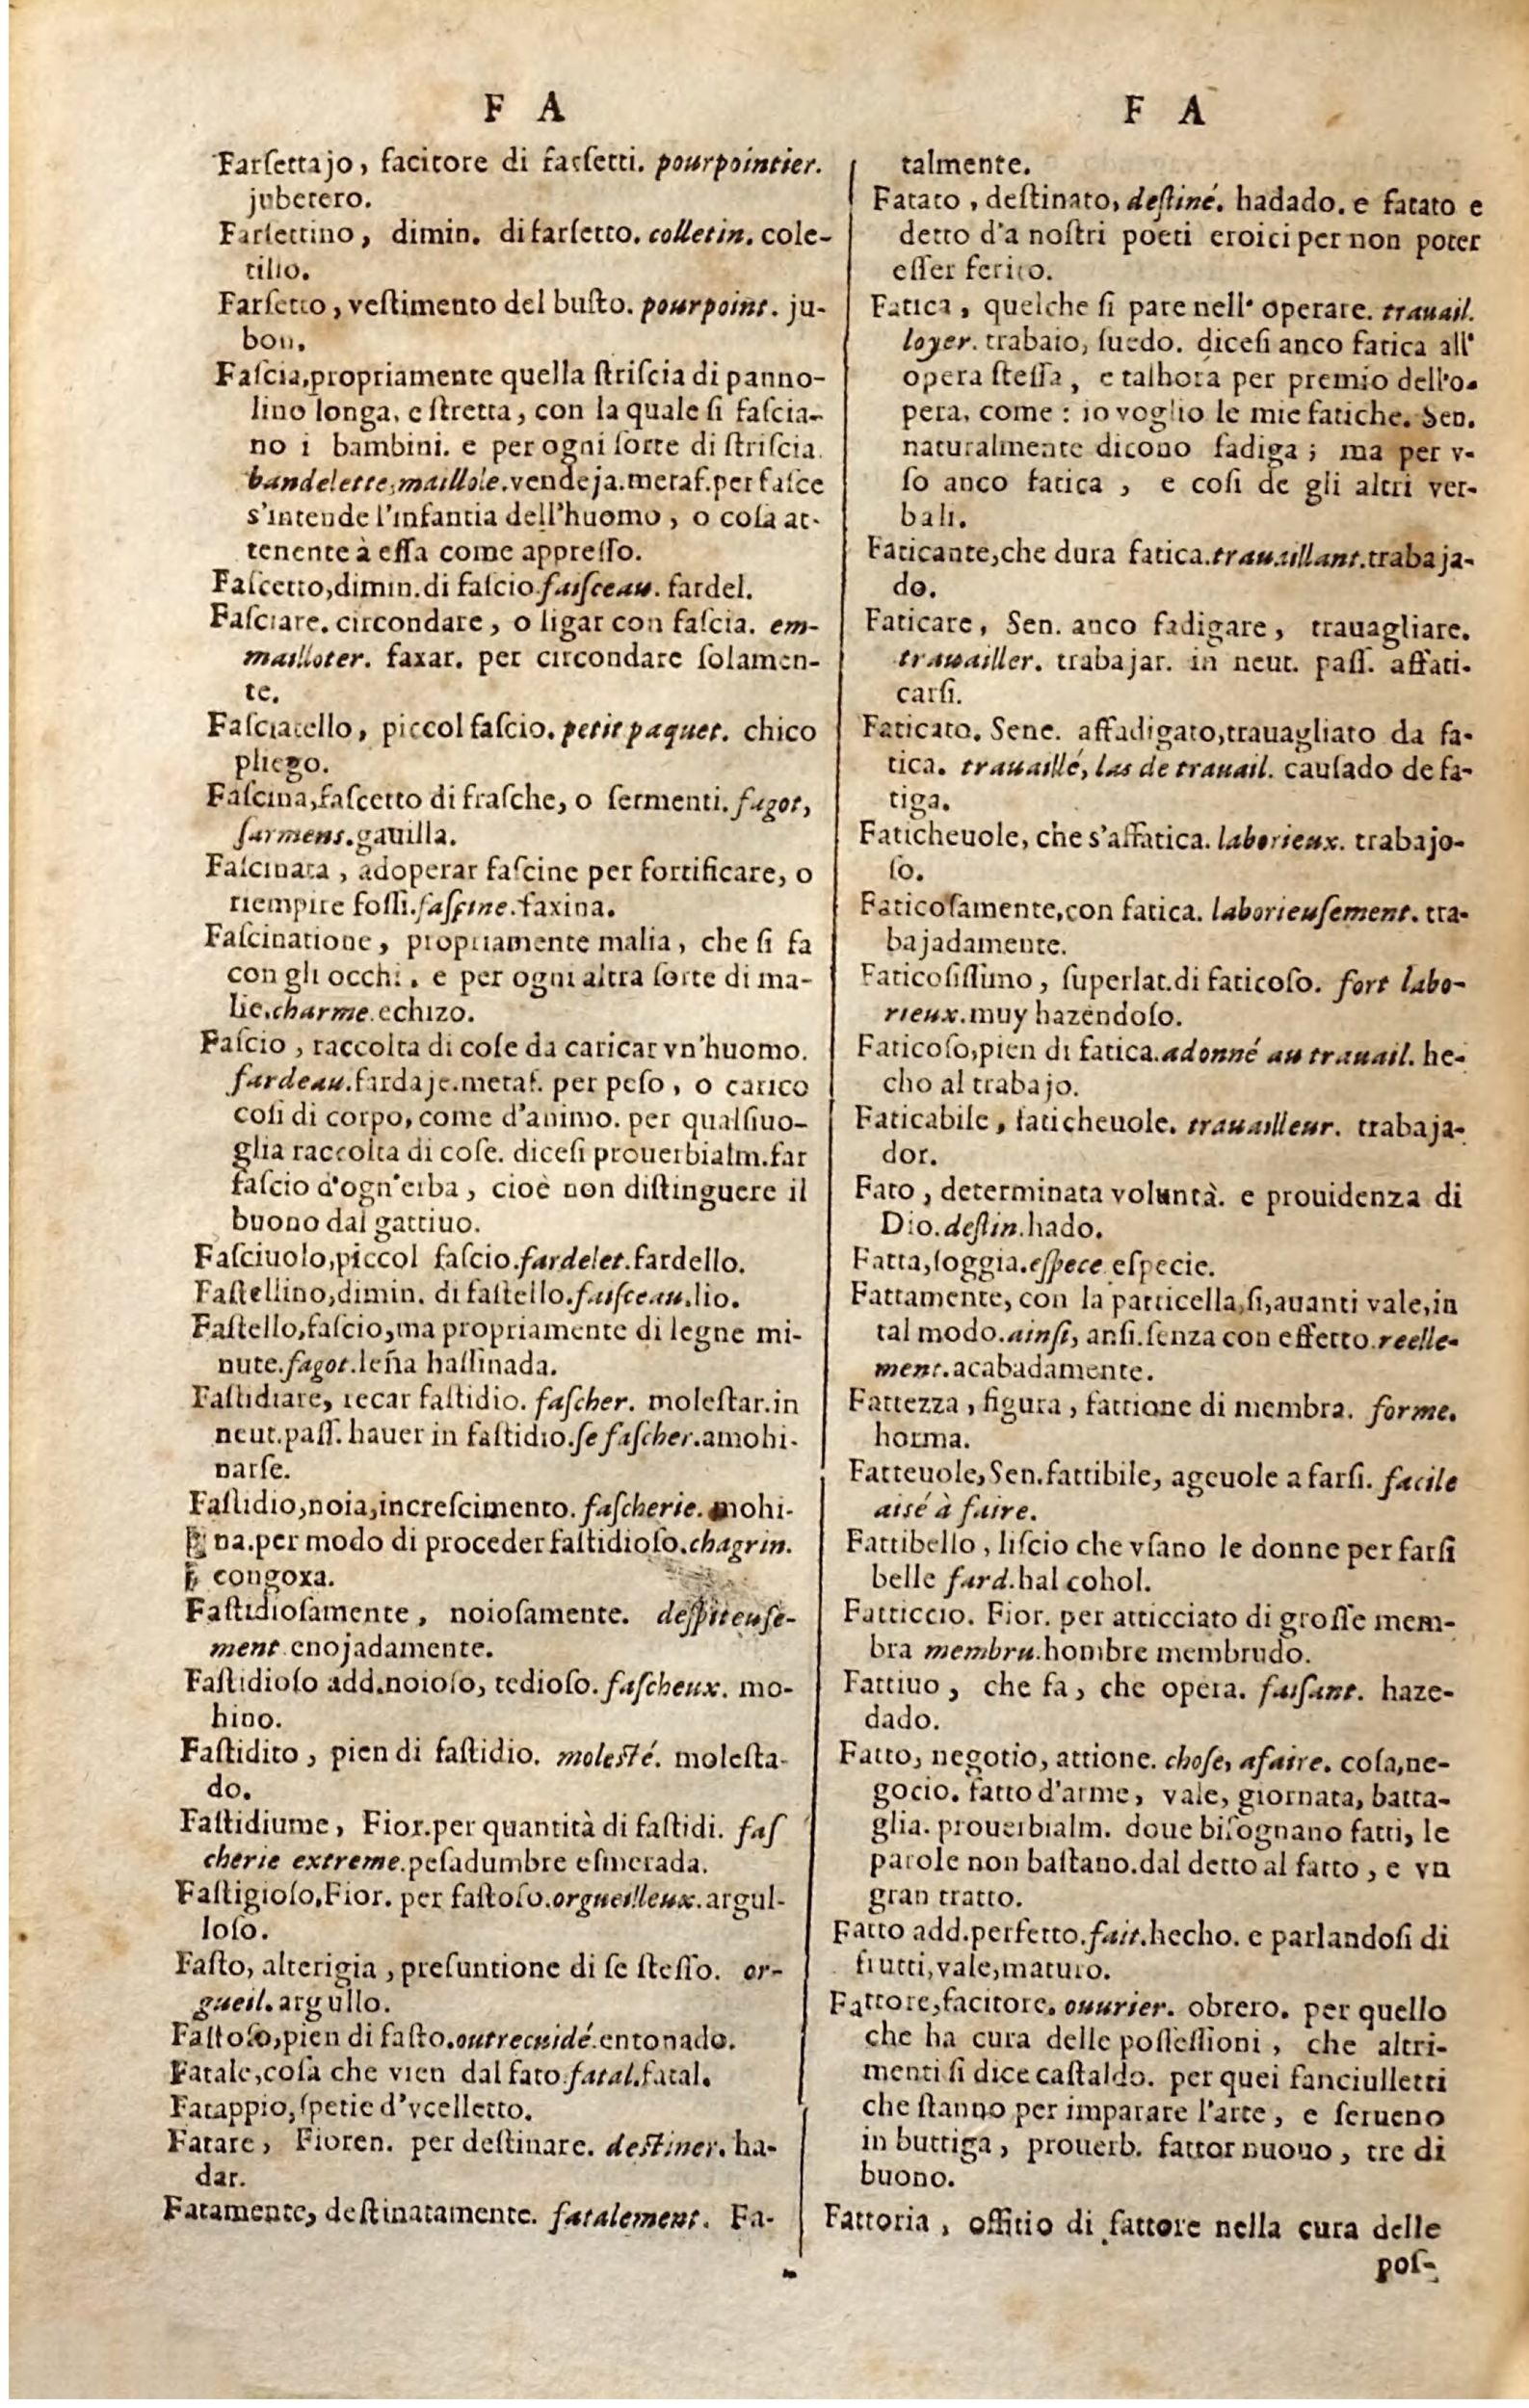 F A
Farſettajo, facitore di farſetti. pourpointier.
jubetero.
Farſettino, dimin. di farſetto. colletin. cole-
tillo.
Farſetto, veſtimento del buſto. pourpoint. ju-
bon.
Faſcia, propriamente quella ſtriſcia di panno-
lino longa, e ſtretta, con la quale ſi faſcia-
no i bambini. e per ogni ſorte di ſtriſcia.
bandelette, maillole. vendeja. metaf. per faſce
s'intende l'infantia dell'huomo, o coſa at-
tenente à eſſa come appreſſo.
Faſcetto, dimin. di faſcio. faiſceau. fardel.
Faſciare. circondare, o ligar con faſcia. em-
mailloter. faxar. per circondare ſolamen-
te.
Faſciatello, piccol faſcio. petit paquet. chico
pliego.
Faſcina, faſcetto di fraſche, o ſermenti. fagot,
ſarmens. gauilla.
Faſcinata, adoperar faſcine per fortificare, o
riempire foſſi. faſcine. faxina.
Faſcinatione, propriamente malia, che ſi fa
con gli occhi. e per ogni altra ſorte di ma-
lie. charme. echizo.
Faſcio, raccolta di coſe da caricar vn'huomo.
fardeau. fardaje. metaf. per peſo, o carico
coſi di corpo, come d'animo. per qualſiuo-
glia raccolta di coſe. diceſi prouerbialm. far
faſcio d'ogn'erba, cioè non diſtinguere il
buono dal gattiuo.
Faſciuolo, piccol faſcio. fardelet. fardello.
Faſtellino, dimin. di faſtello. faiſceau. lio.
Faſtello, faſcio, ma propriamente di legne mi-
nute. fagot. leña haſſinada.
Faſtidiare, recar faſtidio. faſcher. moleſtar. in
neut. paſſ. hauer in faſtidio. ſe faſcher. amohi-
narſe.
Faſtidio, noia, increſcimento. faſcherie. mohi-
na. per modo di proceder faſtidioſo. chagrin.
congoxa.
Faſtidioſamente, noioſamente. deſpiteuſe-
ment. enojadamente.
Faſtidioſo add. noioſo, tedioſo. faſcheux. mo-
hino.
Faſtidito, pien di faſtidio. moleſté. moleſta-
do.
Faſtidiume, Fior. per quantità di faſtidi. faſ
cherie extreme. peſadumbre eſmerada.
Faſtigioſo, Fior. per faſtoſo. orgueilleux. argul-
loſo.
Faſto, alterigia, preſuntione di ſe ſteſſo. or-
gueil. argullo.
Faſtoſo, pien di faſto. outrecuidé. entonado.
Fatale, coſa che vien dal fato. fatal. fatal.
Fatappio, ſpetie d'vcelletto.
Fatare, Fioren. per deſtinare. deſtiner. ha-
dar.
Fatamente, deſtinatamente. fatalement. Fa-
F A
talmente.
Fatato, deſtinato, deſtiné. hadado. e fatato e
detto d'a noſtri poeti eroici per non poter
eſſer ferito.
Fatica, quelche ſi pare nell' operare. trauail.
loyer. trabaio, ſuedo. diceſi anco fatica all'
opera ſteſſa, e talhora per premio dell'o-
pera, come: io voglio le mie fatiche. Sen.
naturalmente dicono fadiga; ma per v-
ſo anco fatica, e coſi de gli altri ver-
bali.
Faticante, che dura fatica. trauaillant. trabaja-
do.
Faticare, Sen. anco fadigare, trauagliare.
trauailler. trabajar. in neut. paſſ. affati-
carſi.
Faticato. Sene. affadigato, trauagliato da fa-
tica. trauaillé, las de trauail. cauſado de fa-
tiga.
Faticheuole, che s'affatica. laborieux. trabajo-
ſo.
Faticoſamente, con fatica. laborieuſement. tra-
bajadamente.
Faticoſiſſimo, ſuperlat. di faticoſo. fort labo-
rieux. muy hazendoſo.
Faticoſo, pien di fatica. adonné au trauail. he-
cho al trabajo.
Faticabile, faticheuole. trauailleur. trabaja-
dor.
Fato, determinata voluntà. e prouidenza di
Dio. deſtin. hado.
Fatta, ſoggia. eſpece. eſpecie.
Fattamente, con la particella, ſi, auanti vale, in
tal modo. ainſi, anſi. ſenza con effetto. reelle-
ment. acabadamente.
Fattezza, figura, fattione di membra. forme.
horma.
Fatteuole, Sen. fattibile, ageuole a farſi. facile
aisé à faire.
Fattibello, liſcio che vſano le donne per farſi
belle fard. hal cohol.
Fatticcio. Fior. per atticciato di groſſe mem-
bra membru. hombre membrudo.
Fattiuo, che fa, che opera. faiſant. haze-
dado.
Fatto, negotio, attione. choſe, afaire. coſa, ne-
gocio. fatto d'arme, vale, giornata, batta-
glia. prouerbialm. doue biſognano fatti, le
parole non baſtano. dal detto al fatto, e vn
gran tratto.
Fatto add. perfetto. fait. hecho. e parlandoſi di
frutti, vale, maturo.
Fattore, facitore. ouurier. obrero. per quello
che ha cura delle poſſeſſioni, che altri-
menti ſi dice caſtaldo. per quei fanciulletti
che ſtanno per imparare l'arte, e ſerueno
in buttiga, prouerb. fattor nuouo, tre di
buono.
Fattoria, offitio di fattore nella cura delle
poſ-